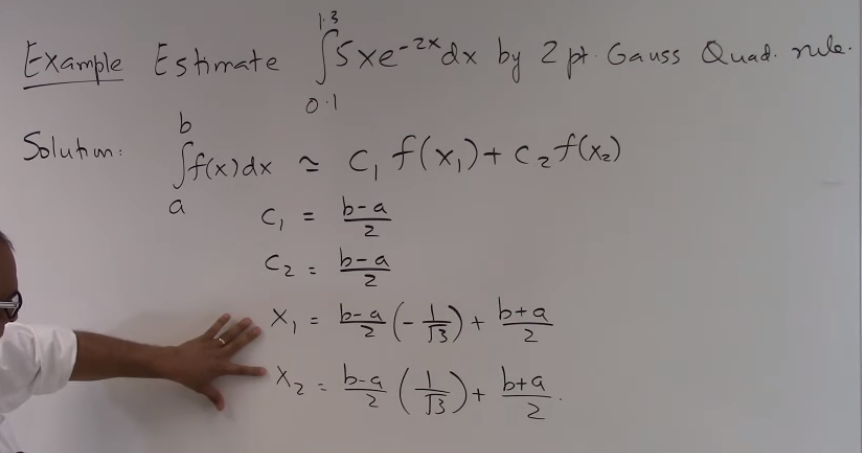 Example Estimate ∫₀.₁^1.3 5xe^-2x dx by 2 pt. Gauss Quad. rule.
Solution: ∫ₐ^b f(x)dx ≃ C₁ f(x₁) + C₂ f(x₂)
C₁ = (b-a)/2
C₂ = (b-a)/2
x₁ = (b-a)/2 (-1/√3) + (b+a)/2
x₂ = (b-a)/2 (1/√3) + (b+a)/2.